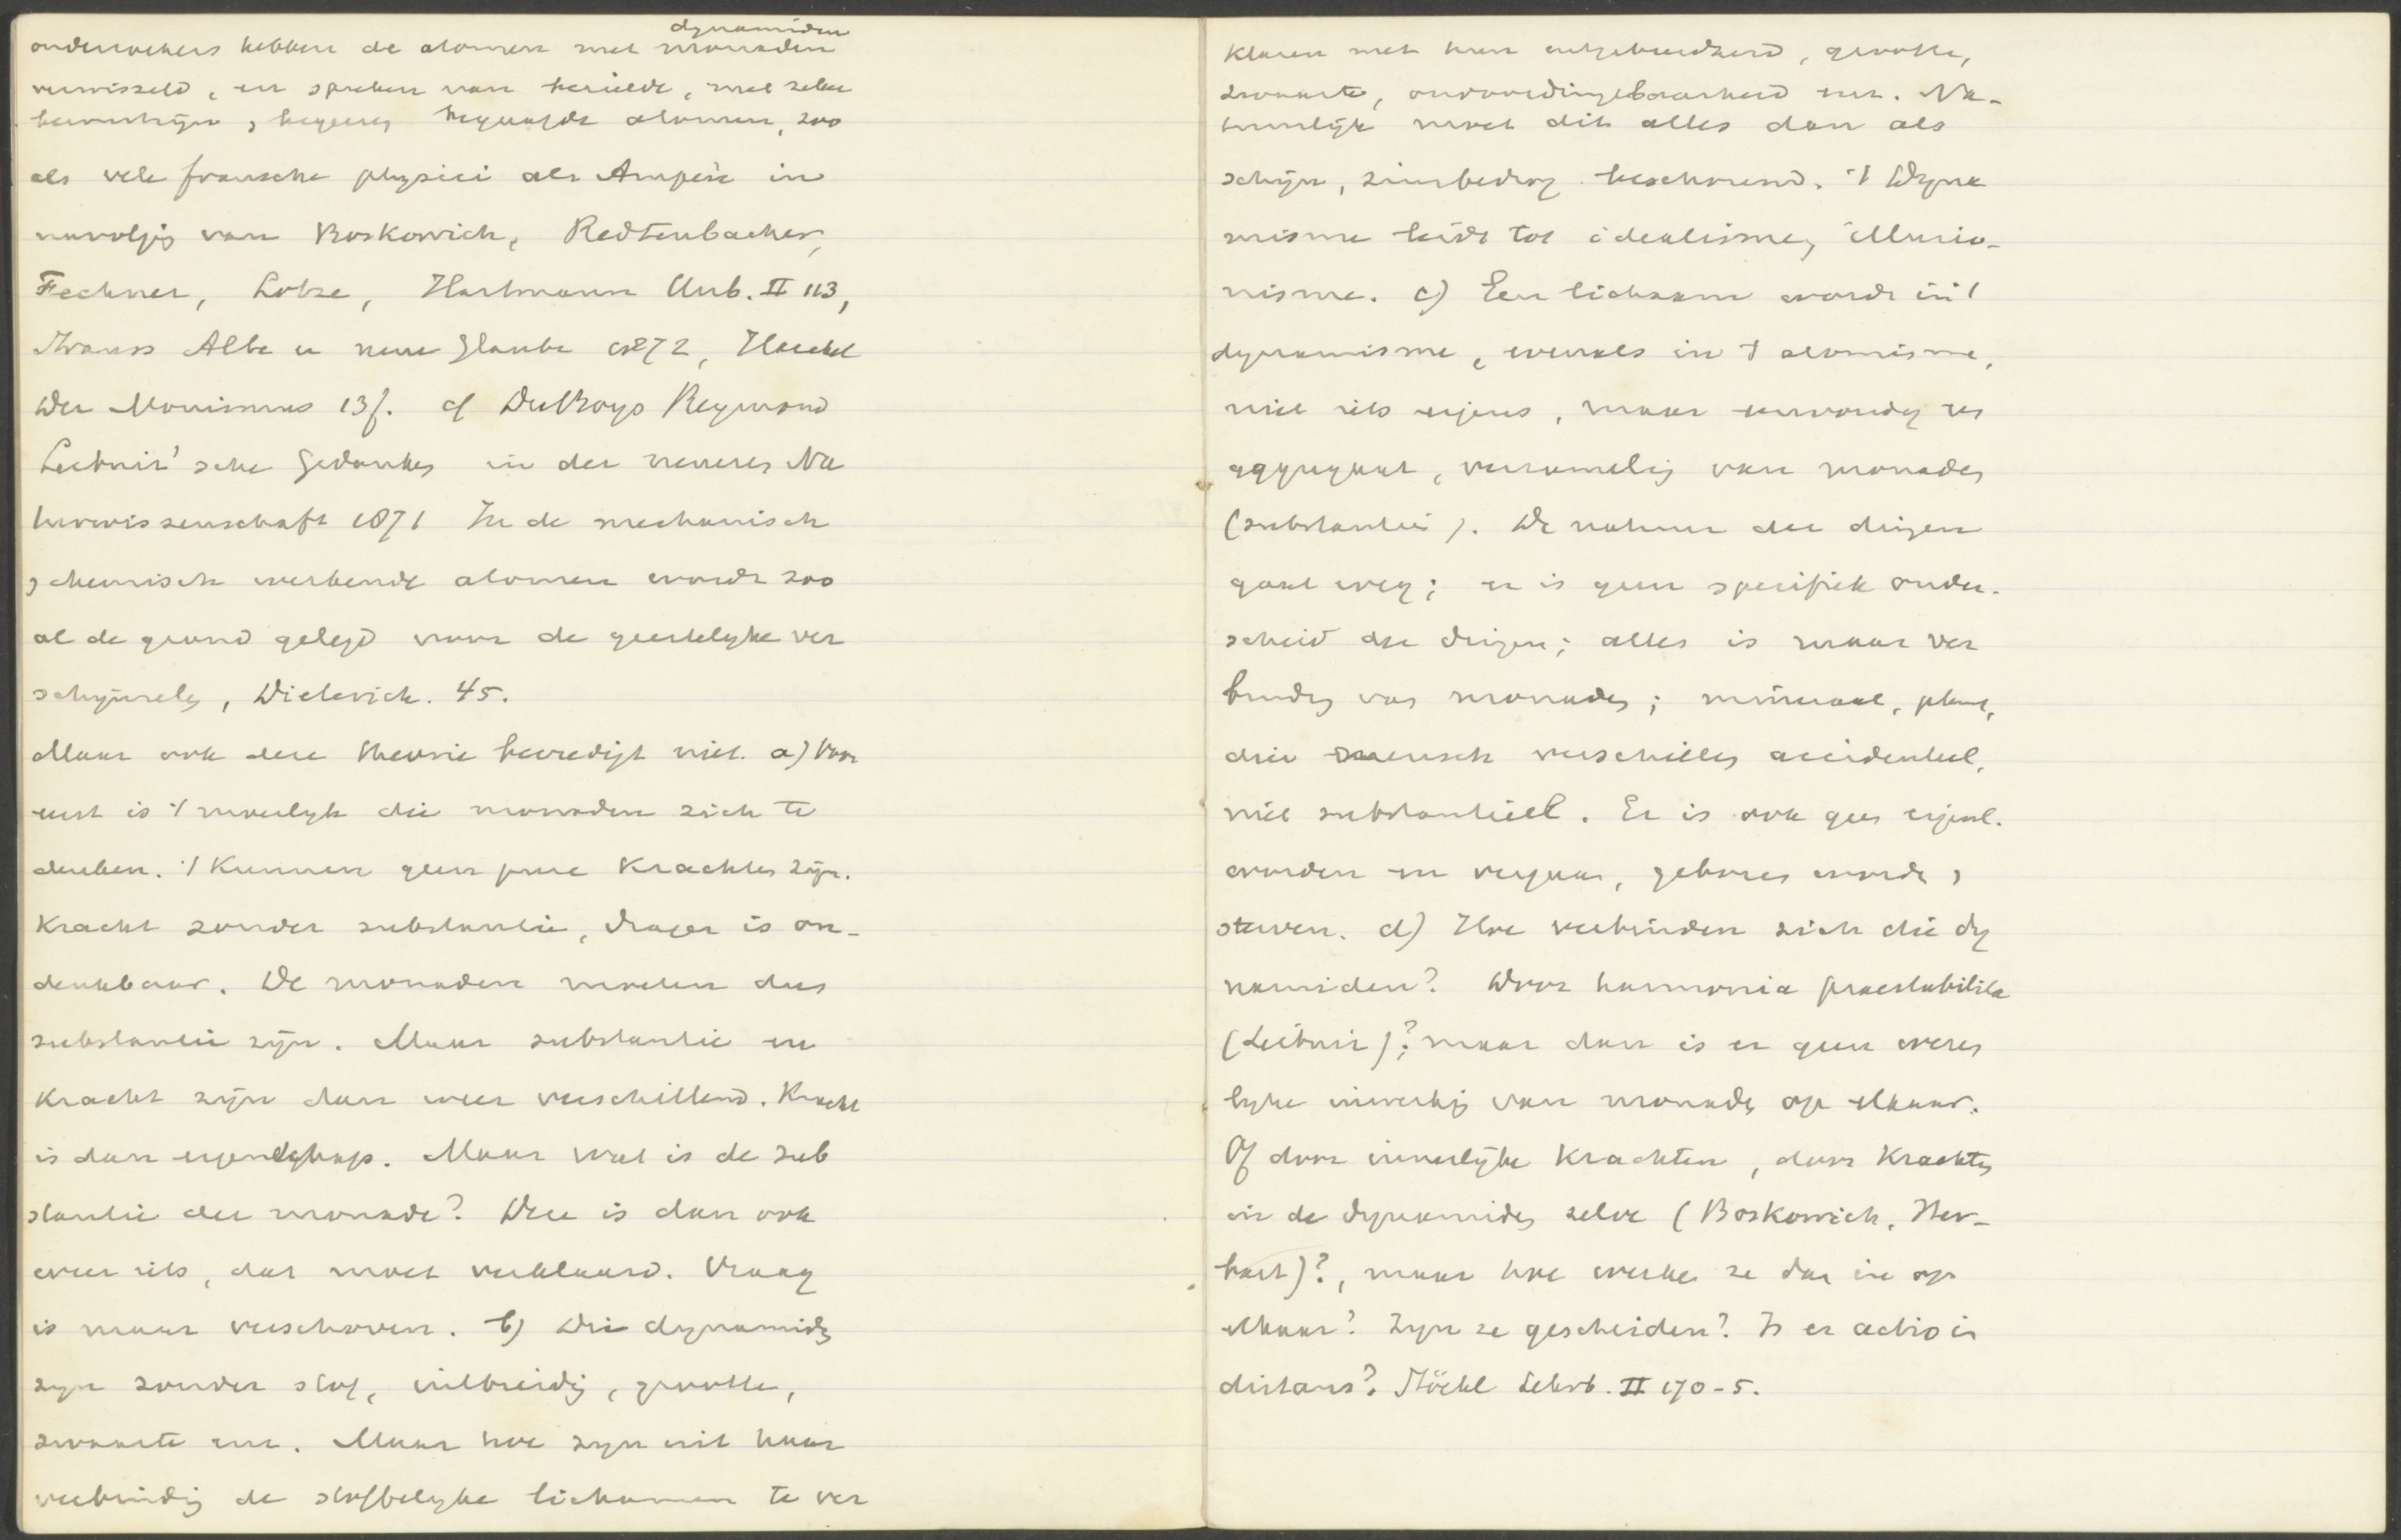 dynamiden
onderzoekers hebben de atomen met monaden
verwisseld, en spreken van bezielde, met zelfbe
bewustzijn, begeeren begaafde atomen, zoo
als vele fransche physici als Ampère in
navolgg van Boskowich, Redtenbacher,
Fechner, Lotze, Hartmann Unb. II 113,
Strauss Alte u neue Glaube 1872, Haeckel
Der Monismus 13f. cf DuBoys Reymond
Leibniz'sche Gedanken in der neueren Na
turwissenschaft 1871 In de mechanisch
, chemisch werkende atomen wordt zoo
al de grond gelegd voor de geestelyke ver
schijnseln, Dieterich. 45.
Maar ook deze theorie bevredigt niet. a) Voor
eerst is 't moeilyk die monaden zich te
denken. 't Kunnen geen pure Krachten zijn.
Kracht zonder substantie, drager is on-
denkbaar. De monaden moeten dus
substantie zijn. Maar substantie en
Kracht zijn dan weer verschillend. Kracht
is dan eigenschap. Maar wat is de sub
stantie der monade? Deze is dan ook
weer iets, dat moet verklaard. Vraag
is maar verschoven. b) Die dynamidn
zyn zonder stof, uitbreidg, grootte,
zwaarte enz. Maar hoe zyn uit haar
verbindg de stoffelyke lichamen te ver
klaren met hun uitgebreidheid, grootte,
zwaarte, ondoordringbaarheid enz. Na-
tuurlijk moet dit alles dan als
schijn, zinsbedrog beschouwd. 't Dyna
misme leidt tot idealisme, illusio-
nisme. c) Een lichaam wordt in 't
dynamisme, evenals in 't atomisme,
niet iets eigens, maar eenvoudig een
aggregaat, verzamelig van monaden
(substantien). De natuur der dingen
gaat weg; er is geen specifiek onder-
scheid der dingen; alles is maar ver
bindg van monaden; mineraal, plant,
dier mensch verschillen accidenteel,
niet substantieel. Er is ook geen eigenl.
worden en vergaan, geboren worden,
sterven. d) Hoe verbinden zich die dy
namiden? Door harmonia praestabilita
(Leibniz)?; maar dan is er geen wezen
lyke inwerkg van monaden op elkaar.
Of door innerlijke Krachten, door Krachten
in de dynamiden zelve (Boskowich, Her-
bart)?, maar hoe werken ze dan in op
elkaar? Zijn ze gescheiden? Is er actio in
distans? Stöckl Lehrb. II 170-5.